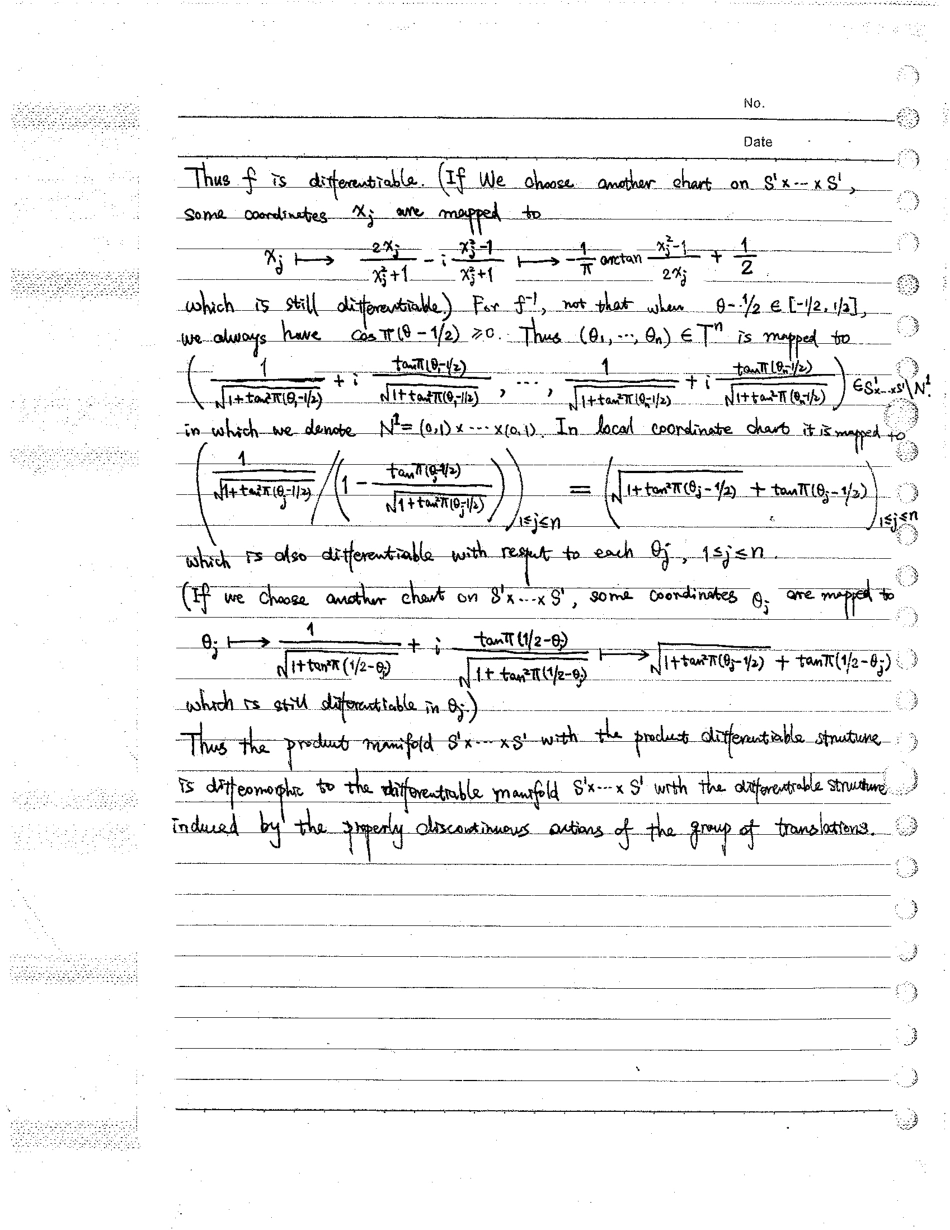 No.
Date
Thus f is differentiable. (If We choose another chart on S¹×⋯×S¹,
some coordinates x_j are mapped to
x_j ⟼ 2x_j/(x_j²+1) - i (x_j²-1)/(x_j²+1) ⟼ -1/π arctan (x_j²-1)/(2x_j) + 1/2
which is still differentiable.) For f⁻¹, not that when θ-1/2 ∈ [-1/2, 1/2],
we always have cos π(θ-1/2) ≥ 0. Thus (θ₁, ⋯, θₙ) ∈ Tⁿ is mapped to
(1/√(1+tan²π(θ₁-1/2)) + i tanπ(θ₁-1/2)/√(1+tan²π(θ₁-1/2)), ⋯, 1/√(1+tan²π(θₙ-1/2)) + i tanπ(θₙ-1/2)/√(1+tan²π(θₙ-1/2))) ∈ S¹×⋯×S¹\N¹.
in which we denote N¹ = (0,1)×⋯×(0,1). In local coordinate chart it is mapped to
(1/√(1+tan²π(θ_j-1/2)) / (1 - tanπ(θ_j-1/2)/√(1+tan²π(θ_j-1/2))))_{1≤j≤n} = (√(1+tan²π(θ_j-1/2)) + tanπ(θ_j-1/2))_{1≤j≤n}
which is also differentiable with respect to each θ_j, 1≤j≤n.
(If we choose another chart on S¹×⋯×S¹, some coordinates θ_j are mapped to
θ_j ⟼ 1/√(1+tan²π(1/2-θ_j)) + i tanπ(1/2-θ_j)/√(1+tan²π(1/2-θ_j)) ⟼ √(1+tan²π(θ_j-1/2)) + tanπ(1/2-θ_j)
which is still differentiable in θ_j.)
Thus the product manifold S¹×⋯×S¹ with the product differentiable structure
is diffeomorphic to the differentiable manifold S¹×⋯×S¹ with the differentiable structure
induced by the properly discontinuous actions of the group of translations.